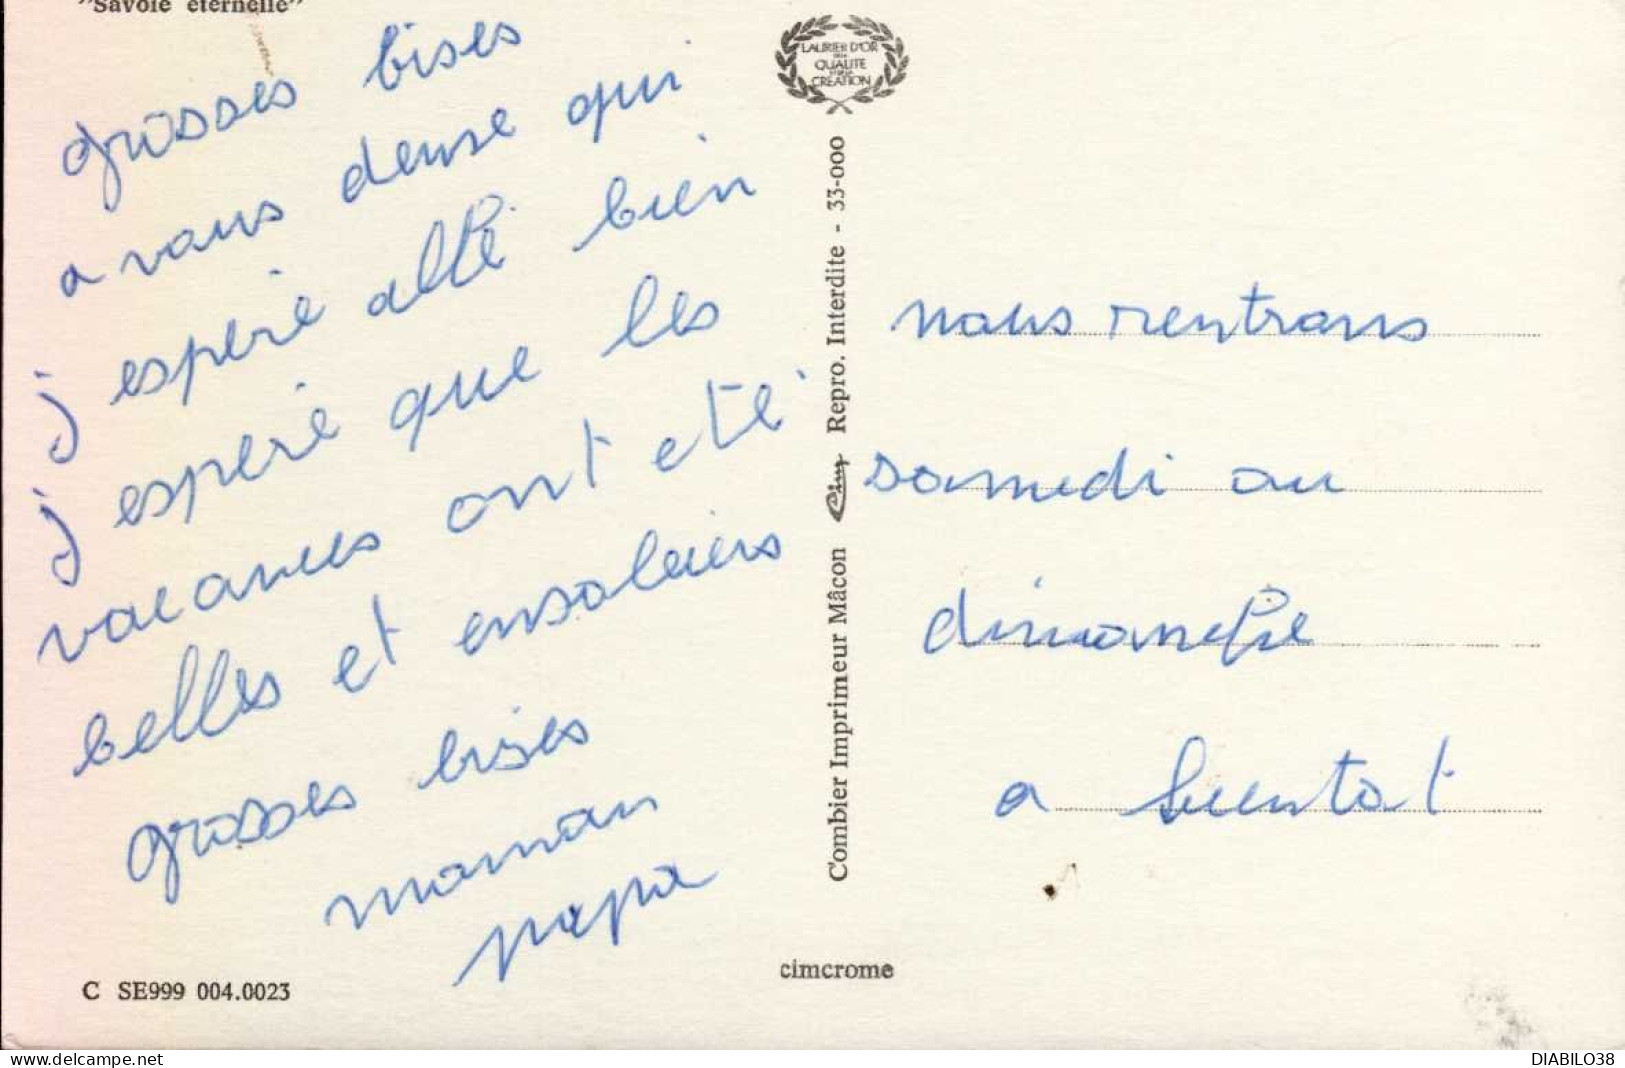 "Savoie éternelle"
grosses bises
a vous deuse qui
j'espère allé bien
j'espère que les
vacances ont eté
belles et ensoleiers
grosses bises
maman
papa
C SE999 004.0023
LAURIER D'OR
DE LA
QUALITE
ET DE LA
CRÉATION
Combier Imprimeur Mâcon Cim Repro. Interdite - 33-000
cimcrome
nous rentrons
samedi ou
dimanche
a bientot
delcampe.net
DIABILO38